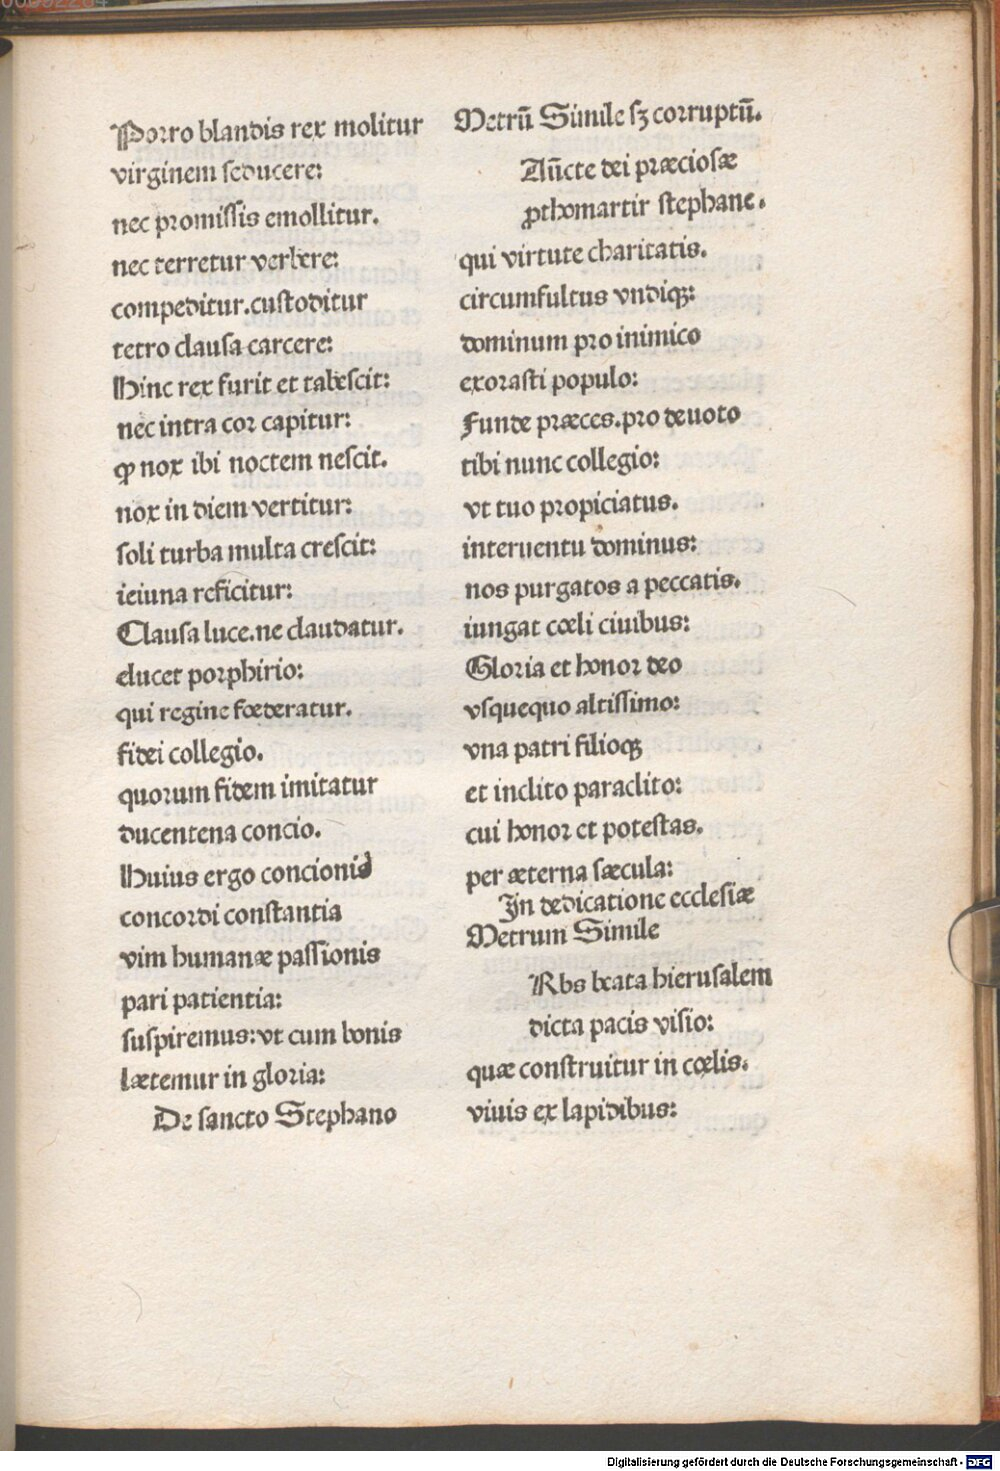 Porro blandis rex molitur
virginem seducere:
nec promissis emollitur.
nec terretur verbere:
compeditur.custoditur
tetro clausa carcere:
Hinc rex furit et tabescit:
nec intra cor capitur:
ꝙ nox ibi noctem nescit.
nox in diem vertitur:
soli turba multa crescit:
ieiuna reficitur:
Clausa luce.ne claudatur.
elucet porphirio:
qui regine fœderatur.
fidei collegio.
quorum fidem imitatur
ducentena concio.
Huius ergo concionis
concordi constantia
vim humanæ passionis
pari patientia:
suspiremus:vt cum bonis
lætemur in gloria:
De sancto Stephano
Metrū Simile sꝫ corruptū.
Aūcte dei præciosæ
ꝓthomartir stephane.
qui virtute charitatis.
circumfultus vndiqꝫ:
dominum pro inimico
exorasti populo:
Funde præces.pro deuoto
tibi nunc collegio:
vt tuo propiciatus.
interuentu dominus:
nos purgatos a peccatis.
iungat cœli ciuibus:
Gloria et honor deo
vsquequo altissimo:
vna patri filioqꝫ
et inclito paraclito:
cui honor et potestas.
per æterna sæcula:
In dedicatione ecclesiæ
Metrum Simile
Rbs beata hierusalem
dicta pacis visio:
quæ construitur in cœlis.
viuis ex lapidibus:
Digitalisierung gefördert durch die Deutsche Forschungsgemeinschaft - DFG